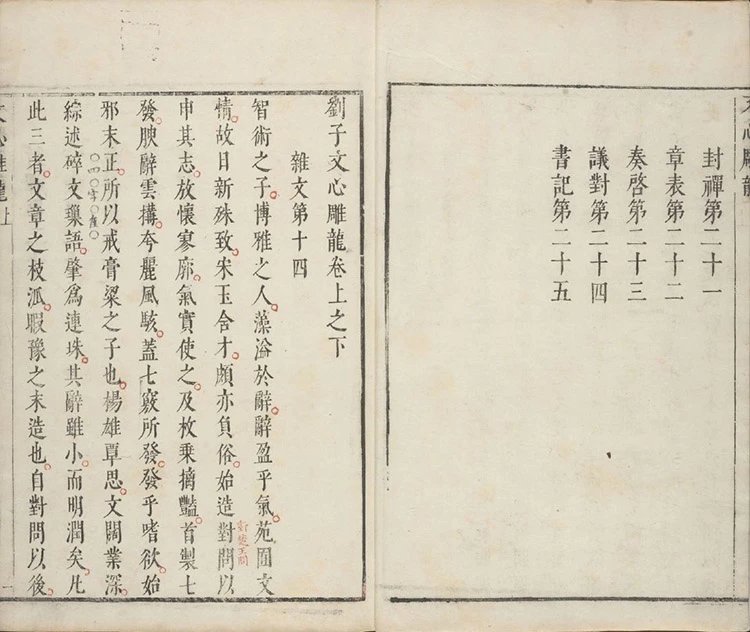 文心雕龍
封禪第二十一
章表第二十二
奏啓第二十三
議對第二十四
書記第二十五
劉子文心雕龍卷上之下
雜文第十四
智術之子。博雅之人。藻溢於辭。辭盈乎氣。苑囿文
情。故日新殊致。宋玉含才。頗亦負俗。始造對問以
對楚王問
申其志。放懷寥廓。氣實使之。及枚乗摛豔。首製七
發。腴辭雲搆。夸麗風駭。蓋七竅所發。發乎嗜欲。始
邪末正。所以戒膏粱之子也。楊雄覃思文闊。業深
綜述。碎文璅語。肇爲連珠。其辭雖小而明潤矣。凡
此三者。文章之枝派。暇豫之末造也。自對問以後。
文心雕龍上
一